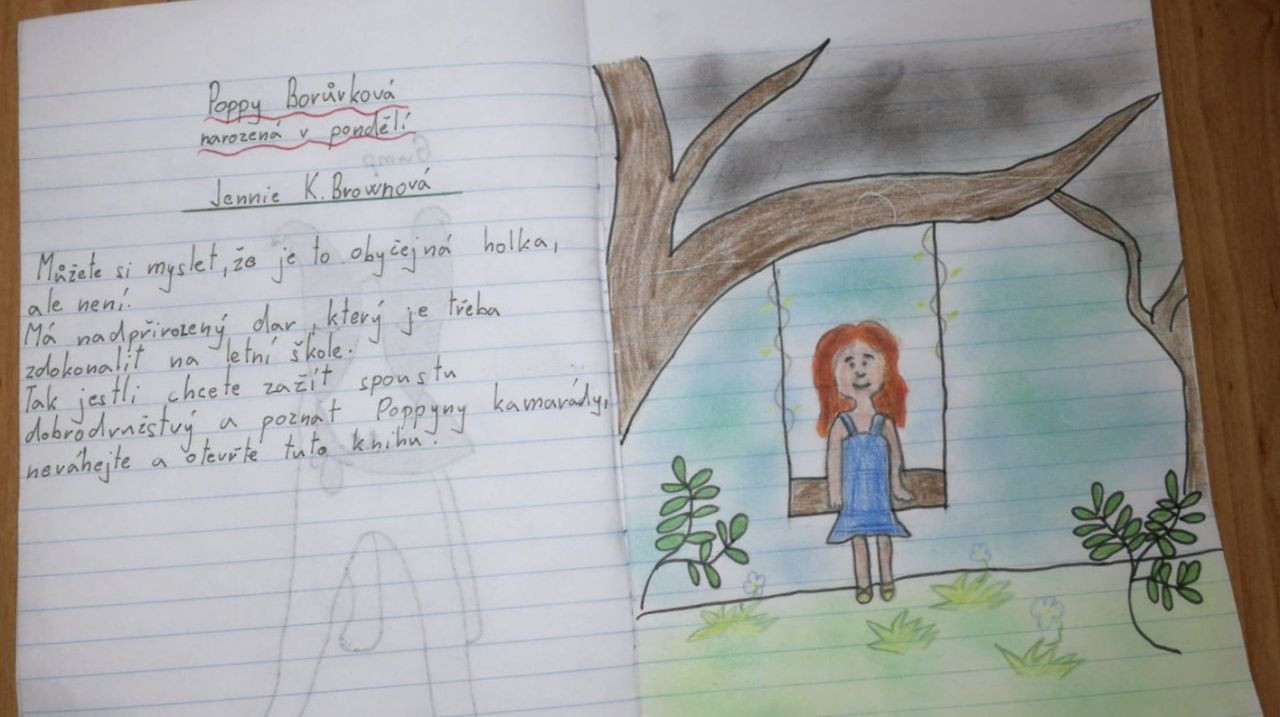 Poppy Borůvková
narozená v pondělí
Jennie K. Brownová
Můžete si myslet, že je to obyčejná holka,
ale není.
Má nadpřirozený dar, který je třeba
zdokonalit na letní škole.
Tak jestli chcete zažít spoustu
dobrodružstvý a poznat Poppyny kamarády,
neváhejte a otevřte tuto knihu.